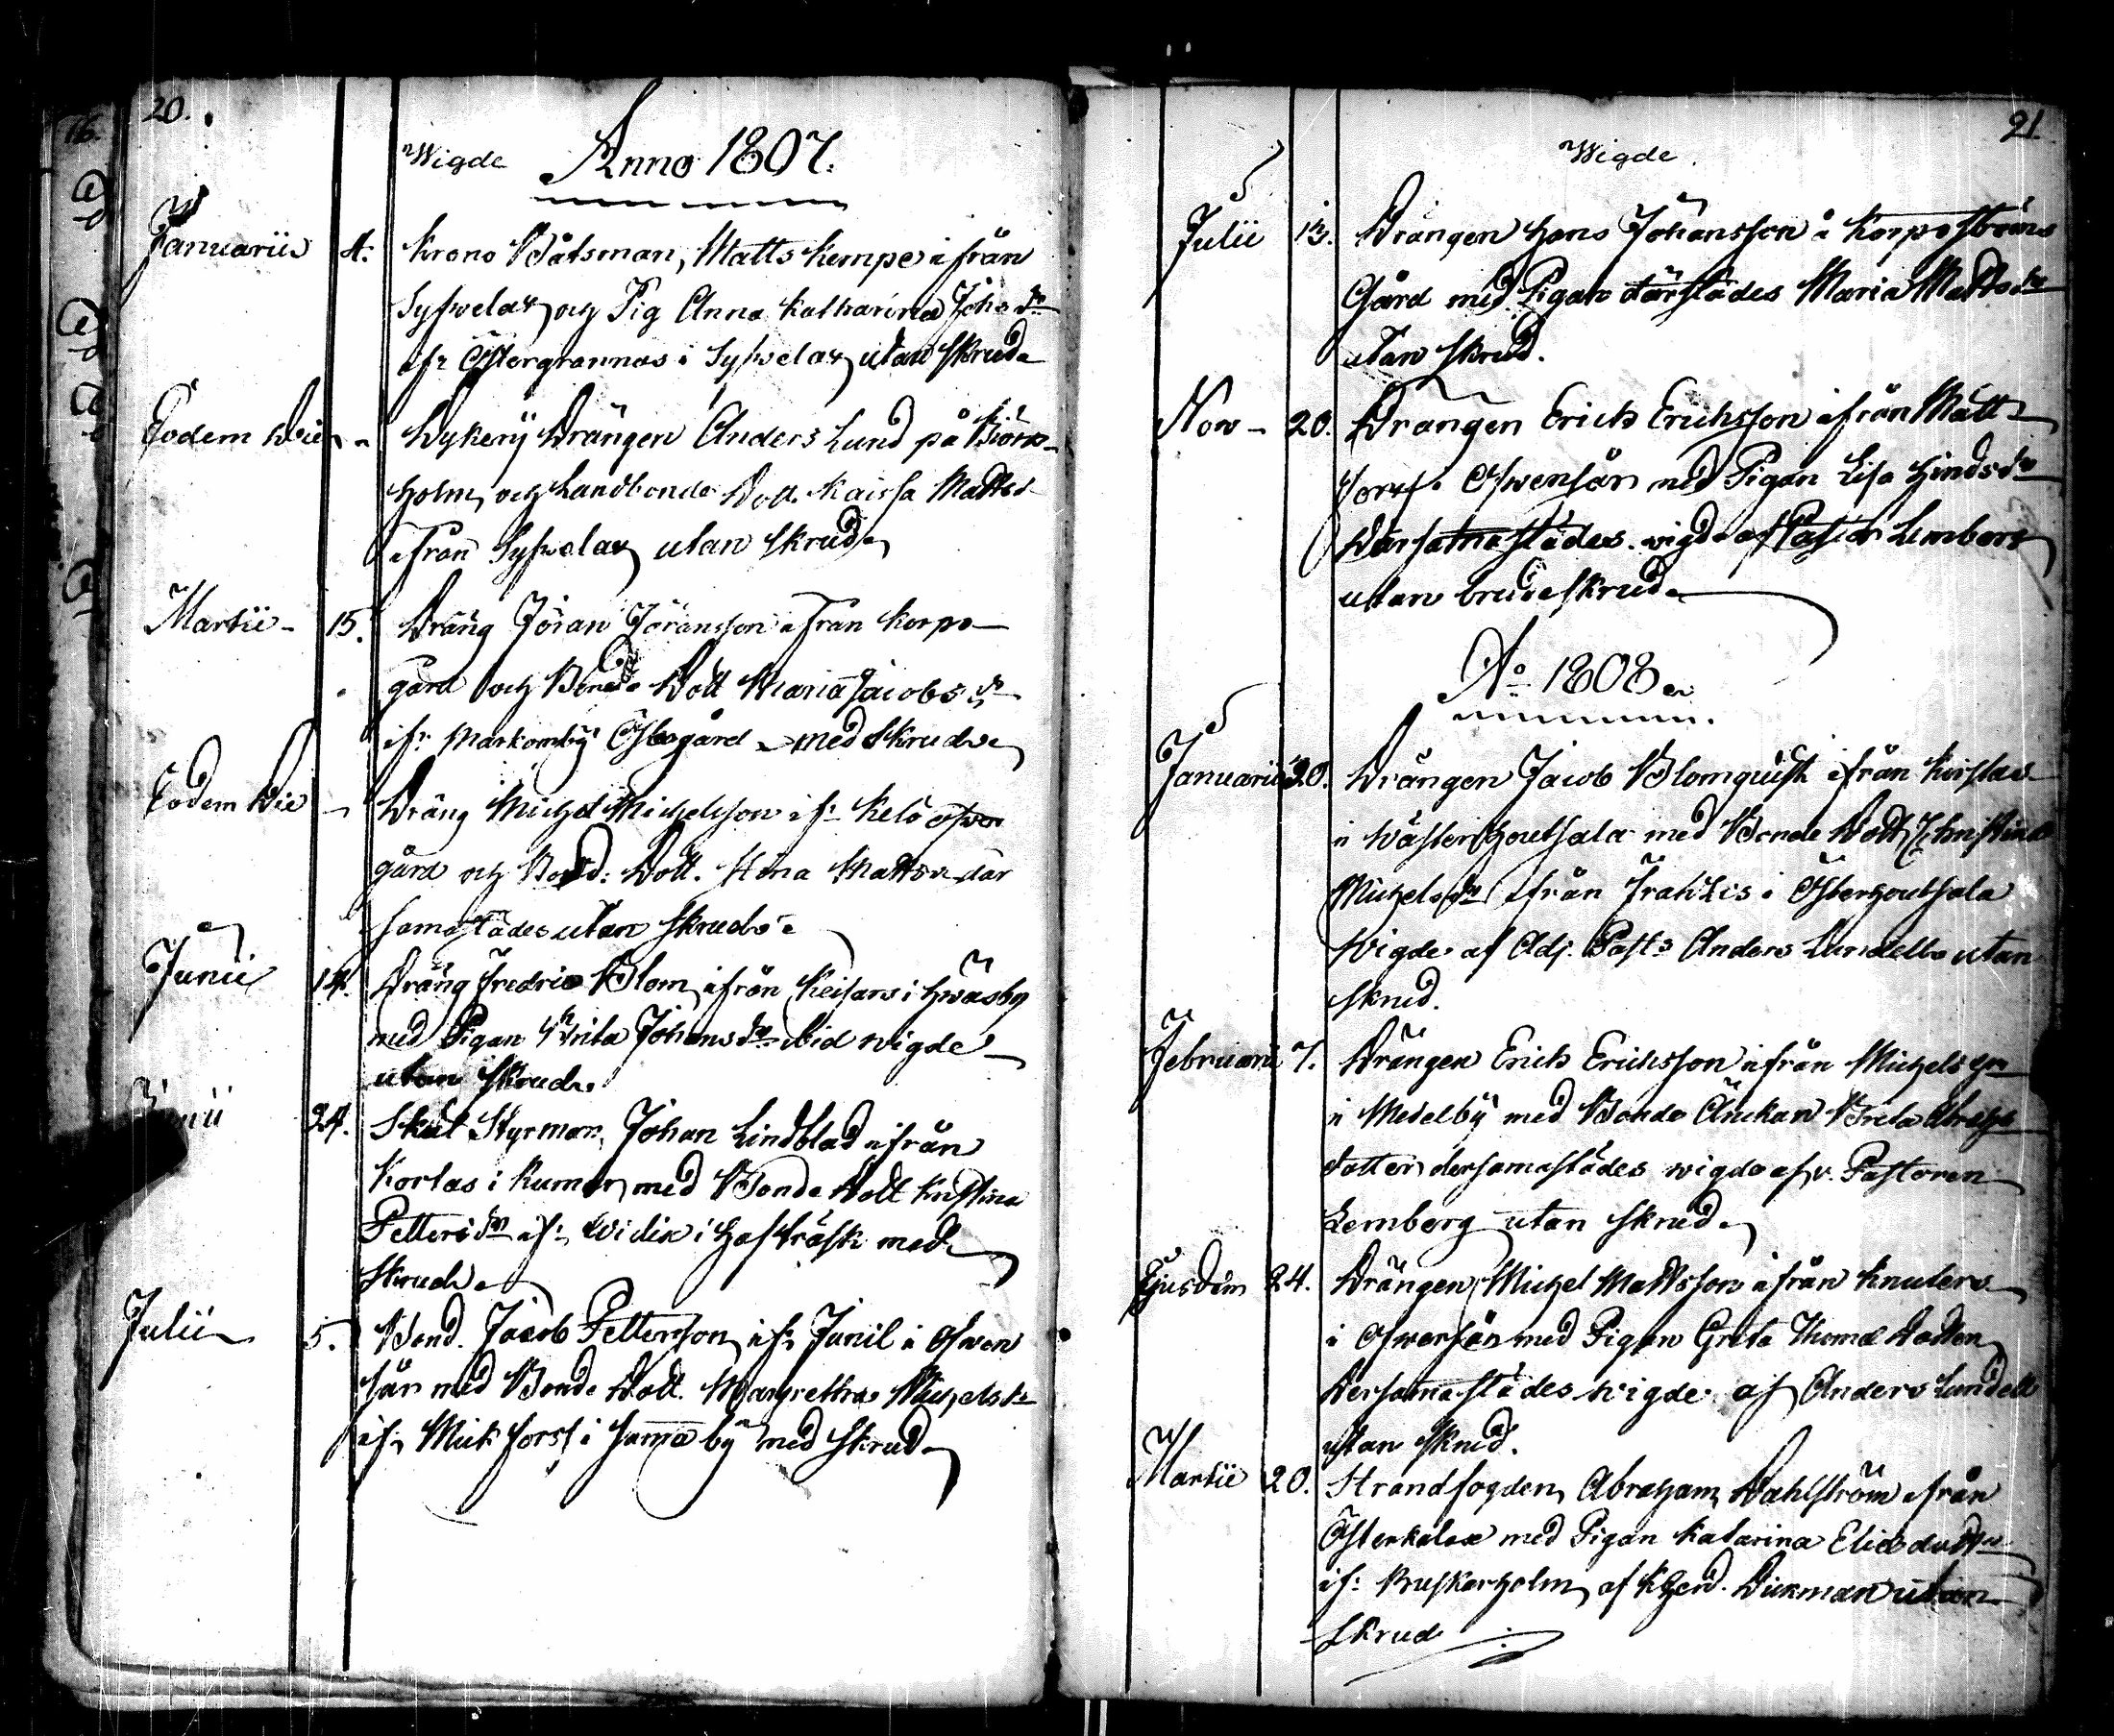 20.
16.
Wigde Anno 1807.
Januarii 4. Krono Båtsman, Matts Kempe ifrån
Syfvelax och Pig Anna Katharina Johs dr
ifr Östergrannas i Syfvelax utan Skrud
Eodem Die Dykerij Drängen Anders Lund på Björk-
holm, och Landbonde Dott. Kaissa Mattsd
ifrån Syfvelax utan Skrud
Martii 15. Dräng Jöran Jöransson ifrån Korpo
gård och Bonde Dott Maria Jacobs dr
ifr Markomby Öfvergård med Skrud
Eodem Die Dräng Michel Michelsson ifr Kelö öfver
gård och Bond: Dott. Stina Matts där
sama städes utan Skrud
Junii 14. Dräng Fredric Blom ifrån Keisars i Hväsby
med Pigan Brita Johansdr ibid wigde
utan Skrud.
Junii 24. Skut Styrman, Johan Lindblad ifrån
Korlas i Rumar med Bonde Dott Kristina
Petters dr ifr i Hafträsk med
Skrud
Julii 5. Bond. Jacob Pettersson ifr Junil i Ofven
sår med Bonde Dott. Margretha Michelsdr
ifr Mickfors i sama by med Skrud
21.
Wigde.
Julii 13. Drängen Hans Johansson å Korpoströms
Gård med Pigan därstädes Maria Mattsdr
utan Skrud.
Nov 20. Drängen Erich Erichsson ifrån Matt
fors i Ofvensår med Pigan Lisa Hindsdr
därsamastädes. wigde af Pastor Lemberg
utan brudeskrud
Ao 1808
Januarii 20. Drängen Jacob Blomquist ifrån
i Wäster Houtsala med Bonde Dott Christina
Michelsdr ifrån i Österhoutsala
Wigde af Adj. Past. Anders Lundell utan
skrud.
Februarii 7. Drängen Erich Erichsson ifrån Michels
i Medelby med Bonde Änckan Brita Abrahs
dotter dersamastädes wigde af v. Pastoren
Lemberg utan skrud
Ejusdem 24. Drängen Michel Mattsson ifrån Knuters
i Ofvensår med Pigan Greta Thomæ Dotter
Dersamastädes wigde af Anders Lundell
utan skrud.
Martii 20. Strandfogden, Abraham Dahlström ifrån
Österkalax med Pigan Katarina Elies dott
ifr Buskarholm af KHerd. Dickman utan
skrud